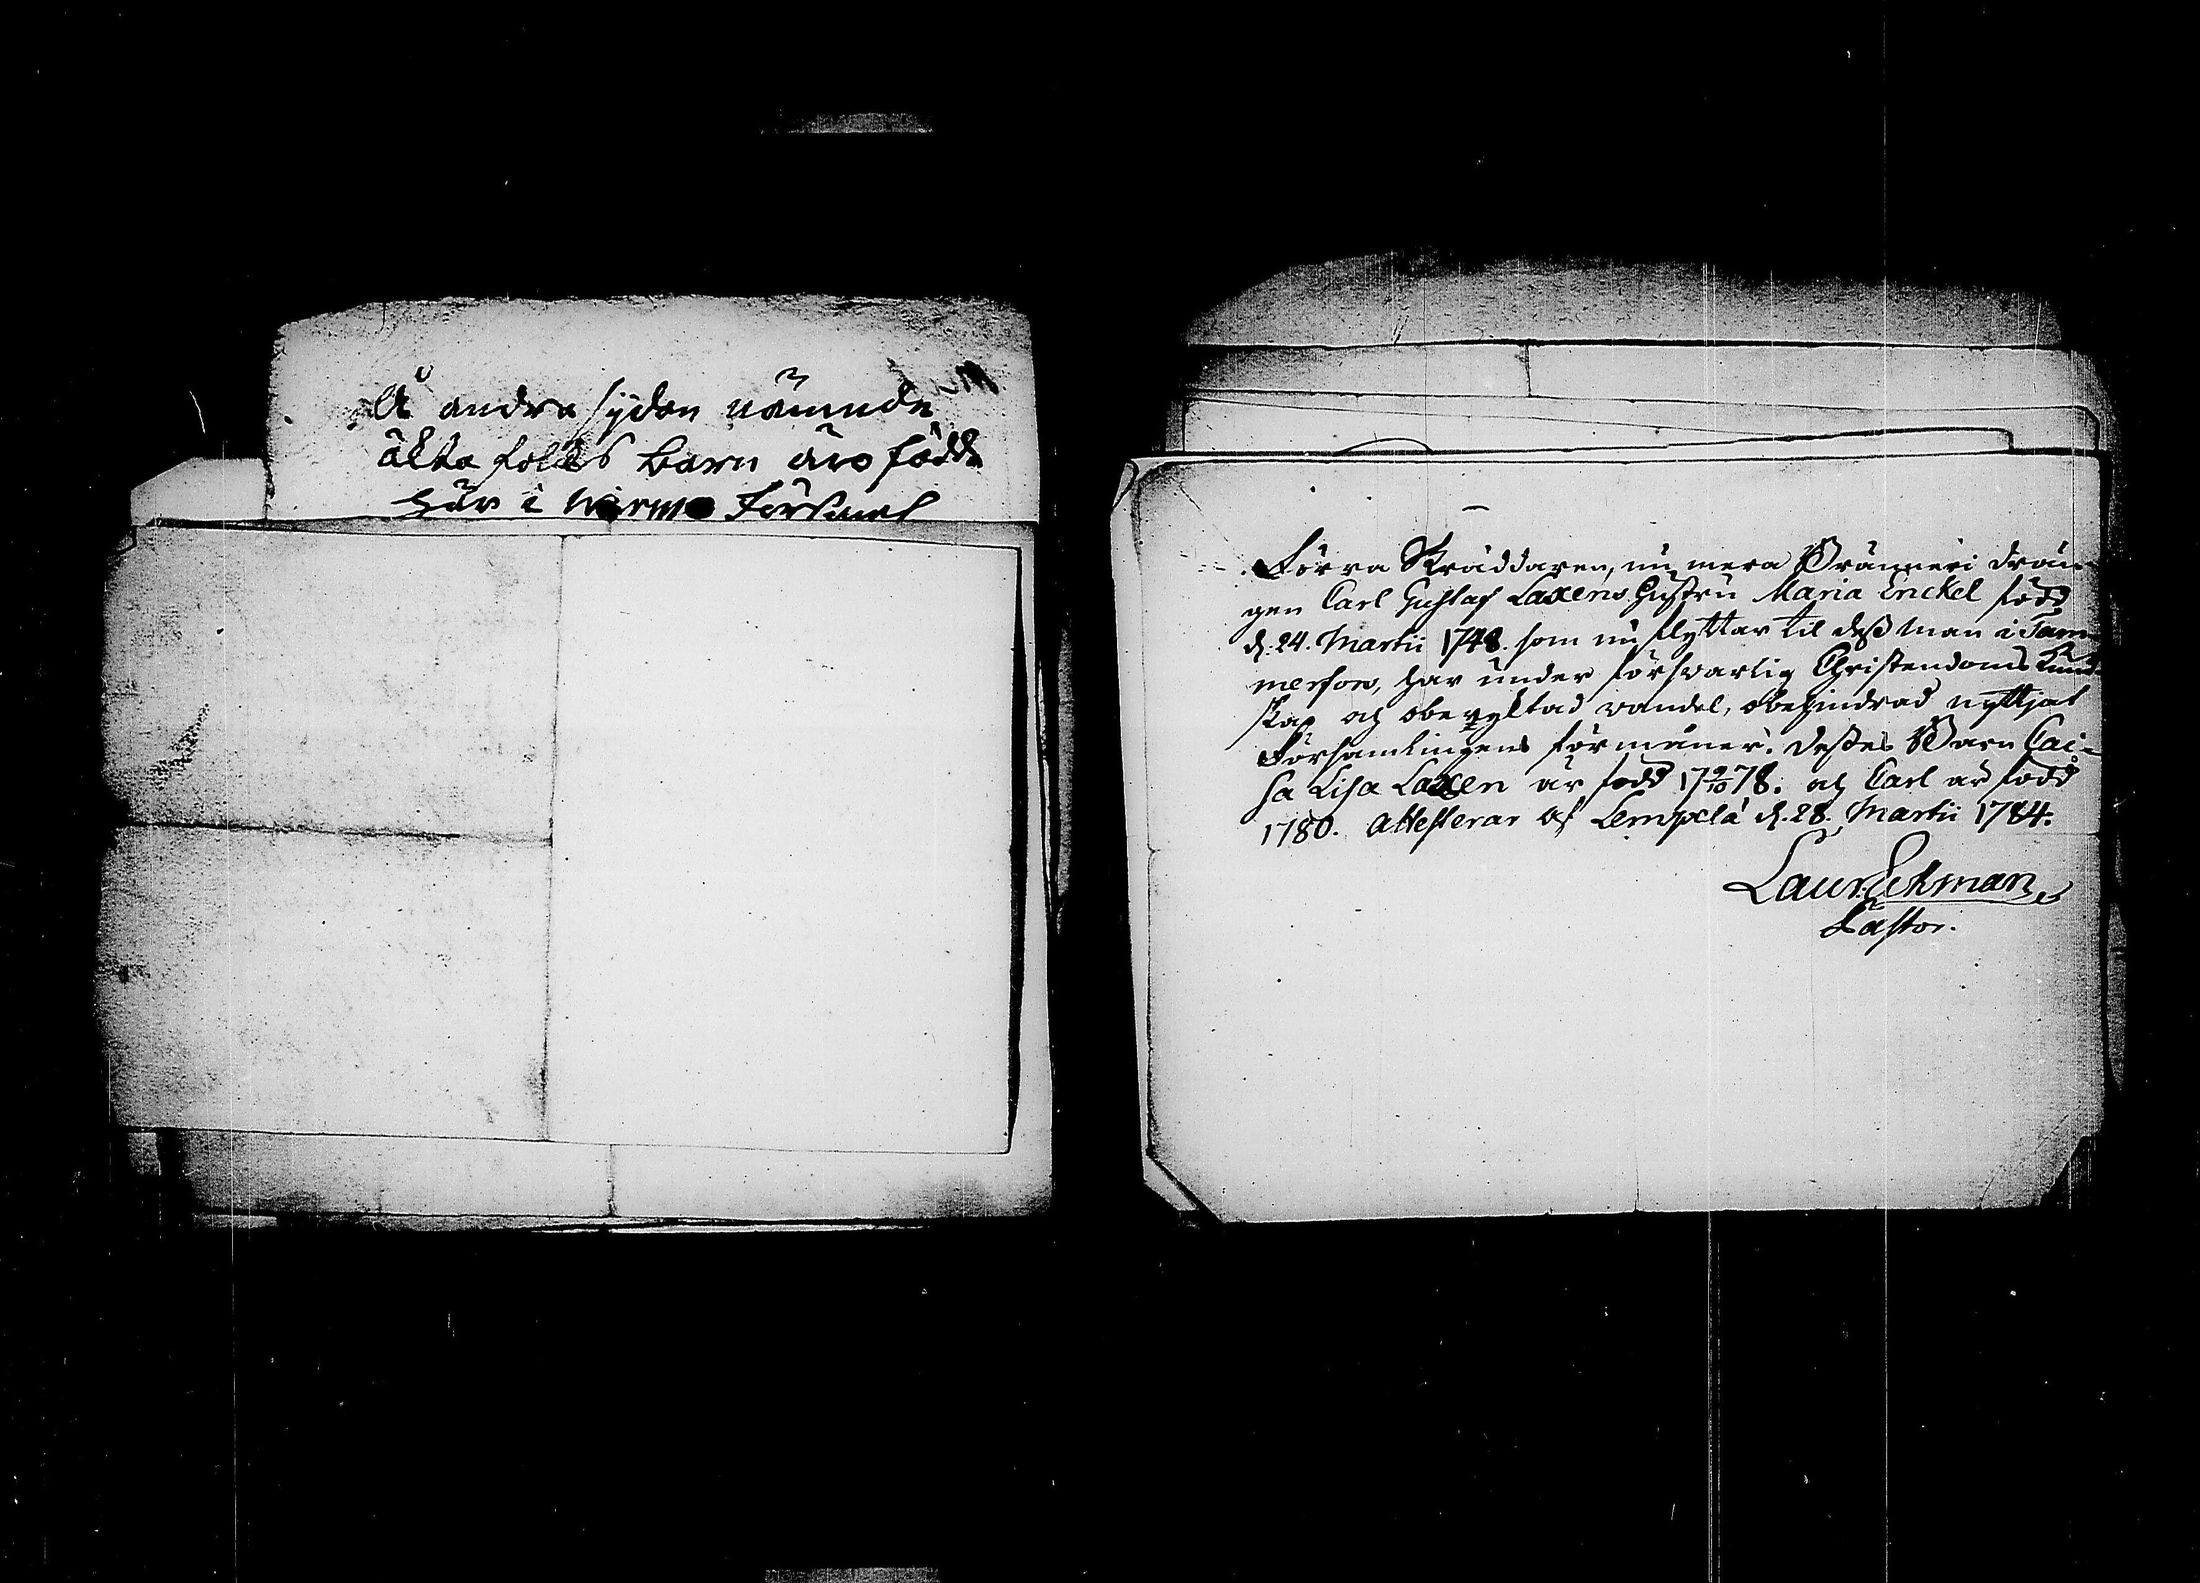 Å andra sydan nämnde
äkta folcks barn äro födde
här i Wirmo Församl
Förra Skräddaren, nu mera Bränneri drän-
gen Carl Gustaf Laxens Hustru Maria Enckel född
d. 24. Martii 1748. som nu flyttar til dess man i Tam-
merfors, har under försvarlig Christendoms kund-
skap och oberyktad vandel, obehindrad nyttjat
Församlingens förmåner. Desses Barn Cai-
sa Lisa Laxen är född 17 9/10 78. och Carl är född
1780. Attesterar af Lempelä d. 28. Martii 1784.
Laur. Ekman
Pastor.